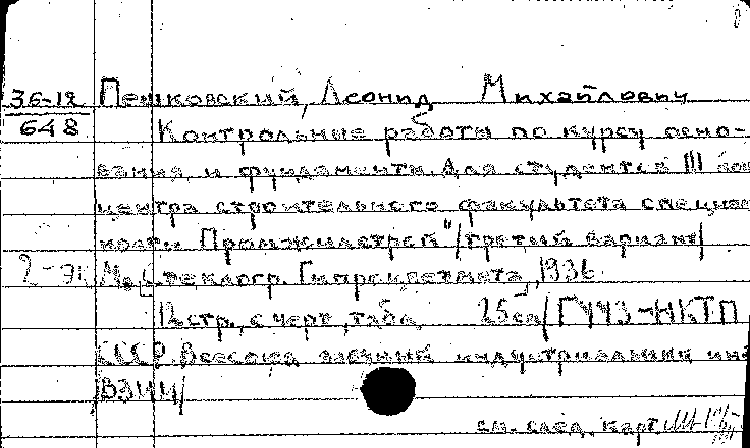 36-12 Пешковский, Леонид Михайлович
648 Контрольные работы по курсу осно-
вания и фундаменты. Для студентов III кон
центра строительного факультета специал
ности Промжилстрой" /третий вариант/
2-эк. М., Стеклогр. Гипроцветмета, 1936
12 стр., с черт., табл. 25 см /ГУУЗ-НКТП
СССР. Всесоюз. заочный индустриальный инс
/ВЗИИ/
см. след. карт.